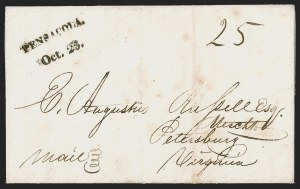 PENSACOLA.
Oct. 23.
25
E. Augustus Russell Esq.
Mercht
Petersburg
Virginia
Mail